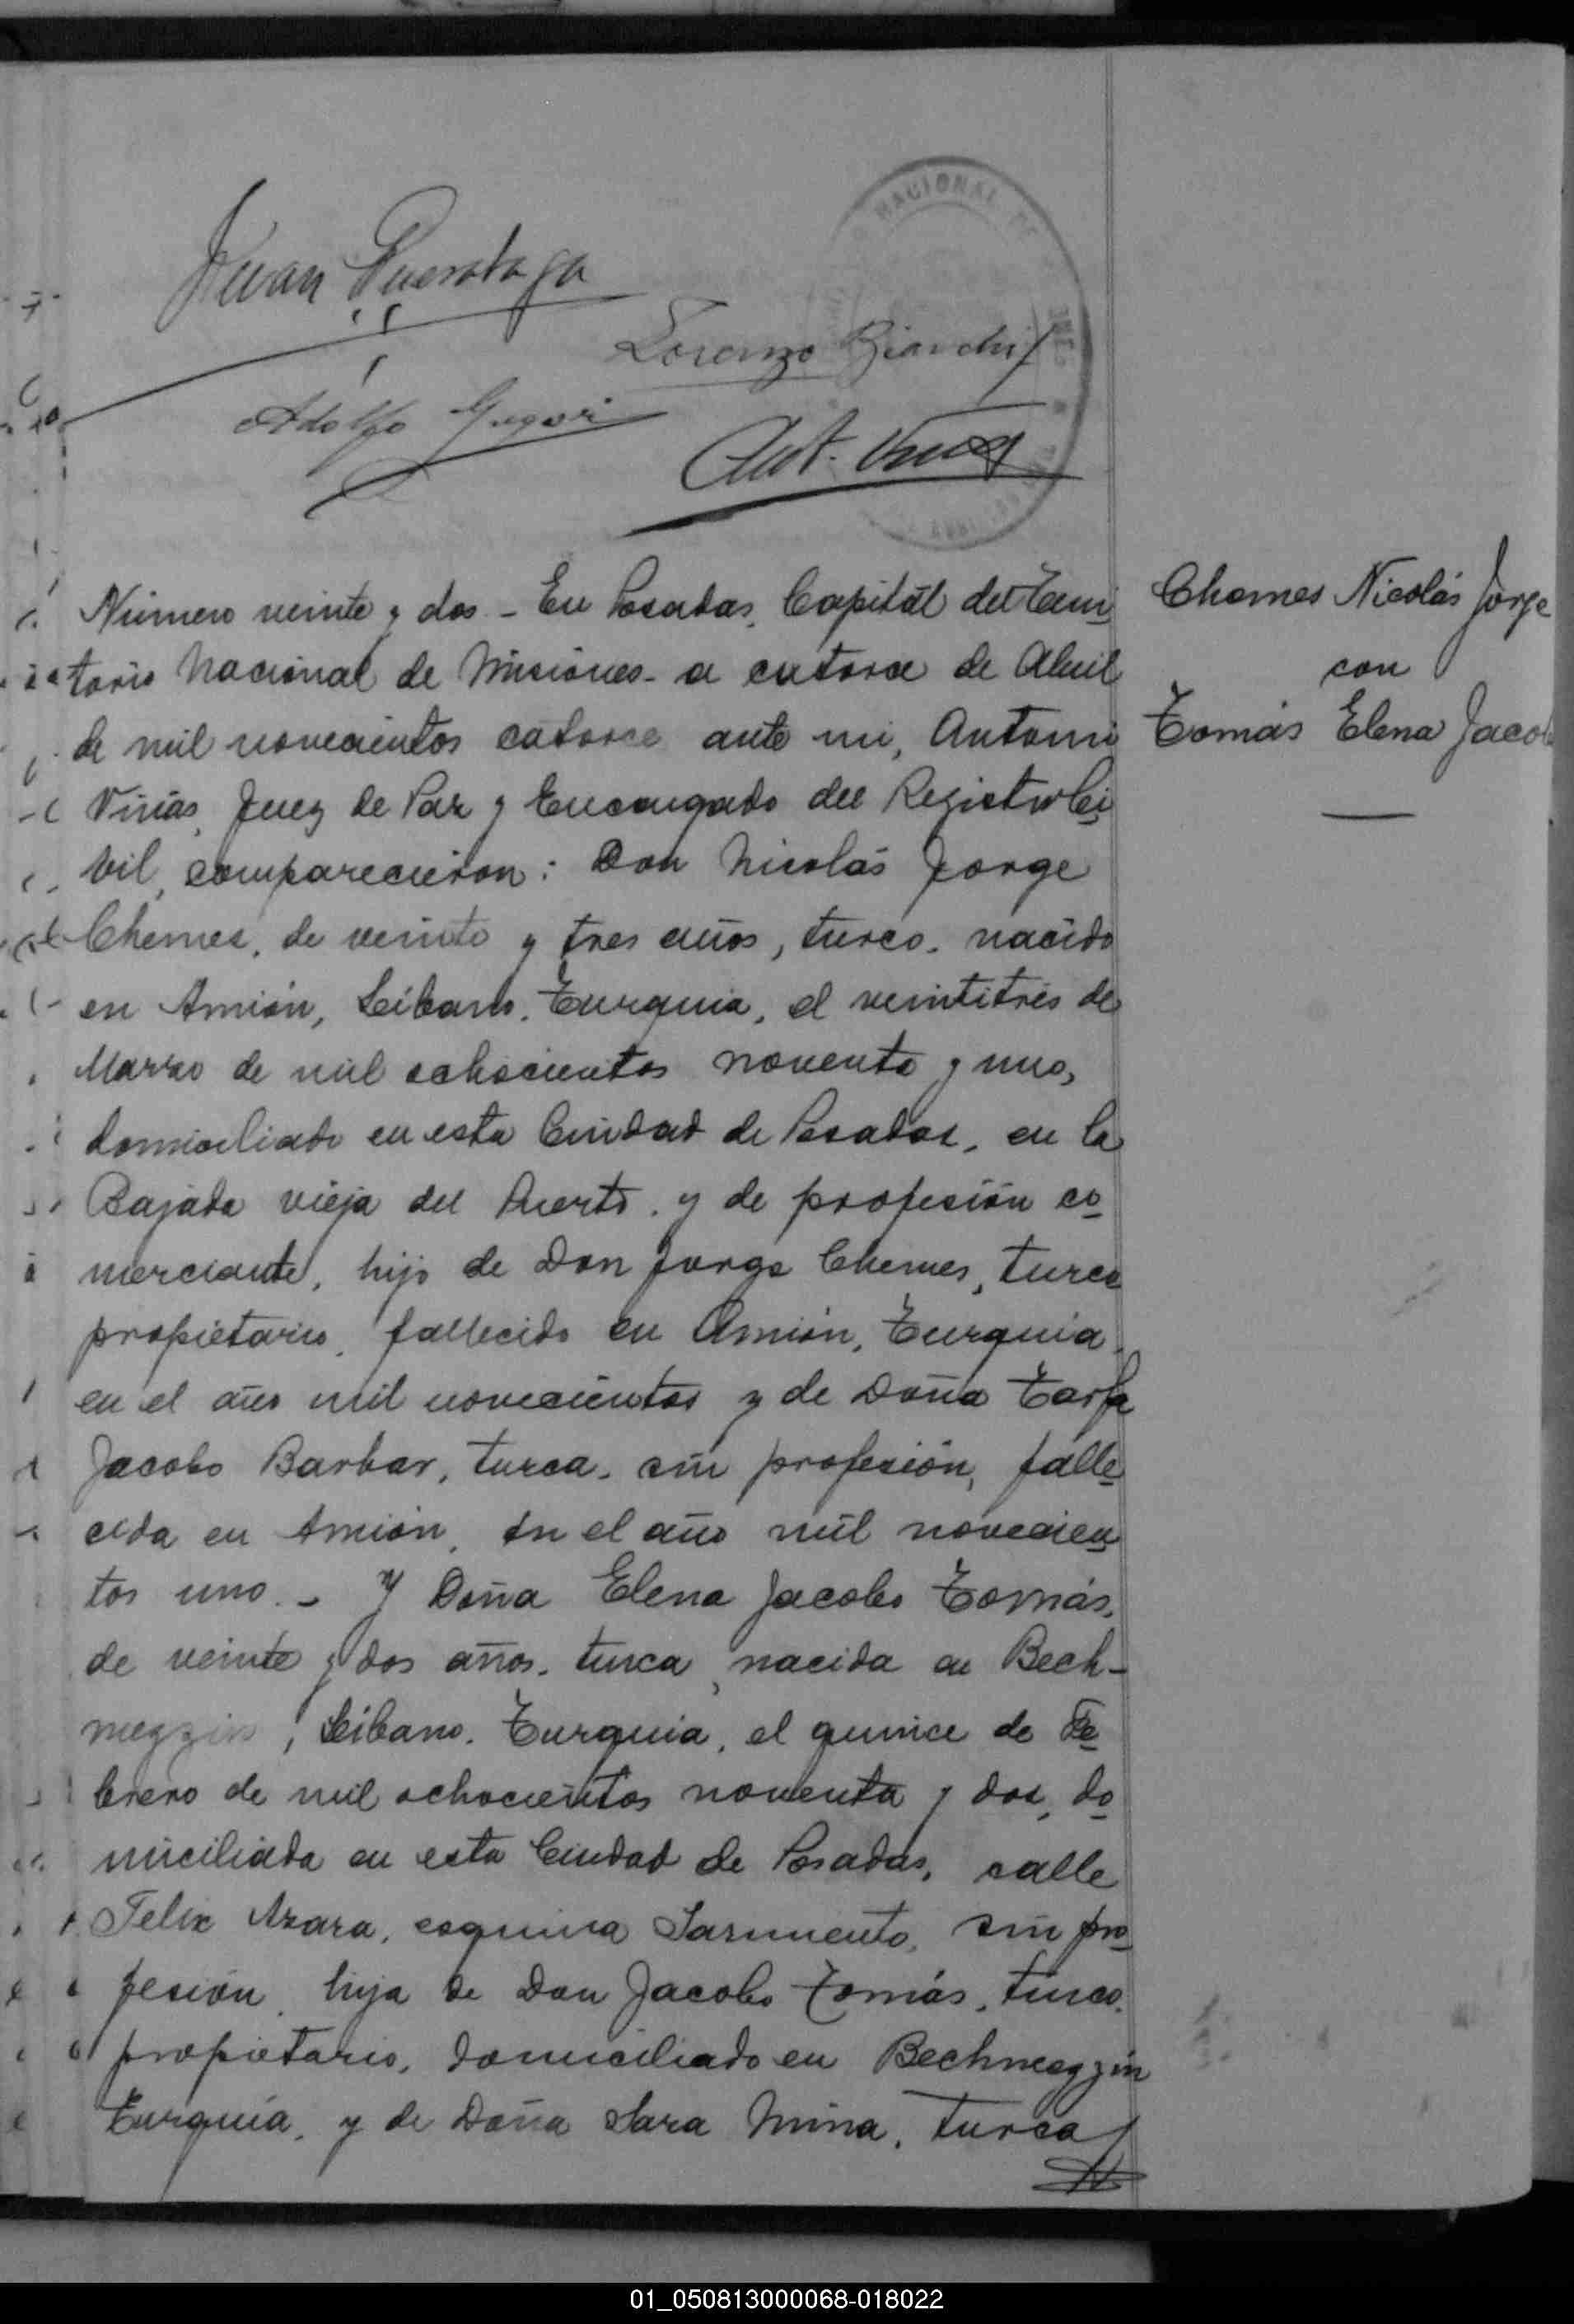 NACIONAL DE
Juan
Lorenzo Bianchi
Adolfo
Ant. Vinas
Número veinte y dos - En Posadas, Capital del Terri
Chemes Nicolás Jorge
torio Nacional de Misiones - a catorce de Abril
con
de mil novecientos catorce ante mi, Antonio
Tomás Elena Jacobo
Viñas, Juez de Paz y Encargado del Registro Ci
vil, comparecieron: Don Nicolás Jorge
Chemes, de veinte y tres años, turco, nacido
en Amión, Líbano, Turquia, el veintitrés de
Marzo de mil ochocientos noventa y uno,
domiciliado en esta Ciudad de Posadas, en la
Bajada vieja del Puerto, y de profesión co
merciante, hijo de Don Jorge Chemes, turco
propietario, fallecido en Amión, Turquia,
en el año mil novecientos y de Doña Tarfa
Jacobo Barbar, turca, sin profesión, falle
cida en Amión, en el año mil novecien
tos uno. - Y Doña Elena Jacobo Tomás,
de veinte y dos años, turca, nacida en Bech-
mezzin, Líbano, Turquia, el quince de Fe
brero de mil ochocientos noventa y dos, do
miciliada en esta Ciudad de Posadas, calle
Felix Azara, esquina Sarmiento, sin pro
fesión, hija de Don Jacobo Tomás, turco,
propietario, domiciliado en Bechmezzin
Turquia, y de Doña Sara Mina, turca
01_050813000068-018022